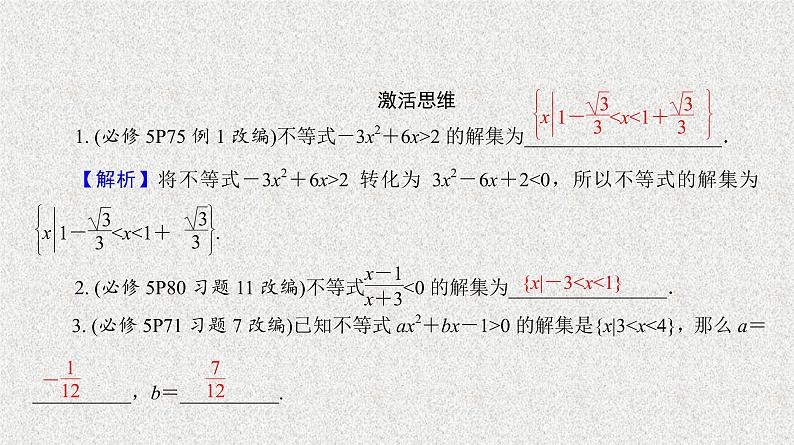 激活思维
1. (必修 5P75 例 1 改编)不等式－3x²＋6x>2 的解集为{x|1－√3/3<x<1＋√3/3}.
【解析】将不等式－3x²＋6x>2 转化为 3x²－6x＋2<0，所以不等式的解集为
{x|1－√3/3<x<1＋ √3/3}.
2. (必修 5P80 习题 11 改编)不等式(x－1)/(x＋3)<0 的解集为{x|－3<x<1}.
3. (必修 5P71 习题 7 改编)已知不等式 ax²＋bx－1>0 的解集是{x|3<x<4}，那么 a＝
－1/12，b＝7/12.